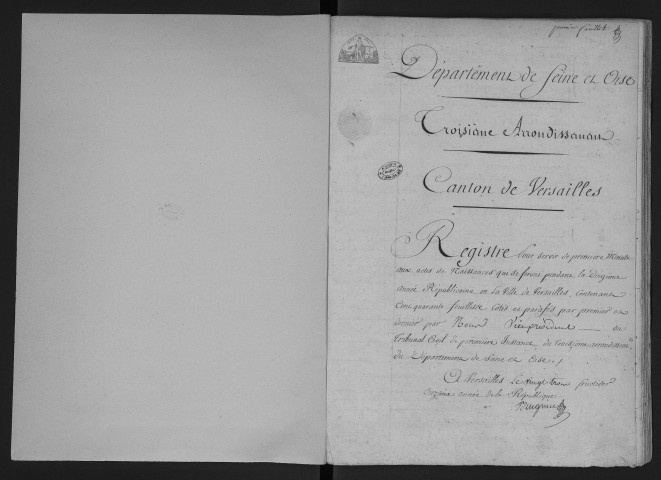 premier feuillet
Département de Seine et Oise
Troisième Arrondissement
Canton de Versailles
Registre Pour servir de première Minute
aux actes de Naissances qui se feront pendant la
année Républicaine en la Ville de Versailles, Contenant
Cent quarante feuillets Cotés et parafés par premier et
dernier par Nous Vice président du
Tribunal Civil de première Instance du troisième arrondissemt
du Département de Seine et Oise ./.
A Versailles Le vingt trois fructidor
année de la République